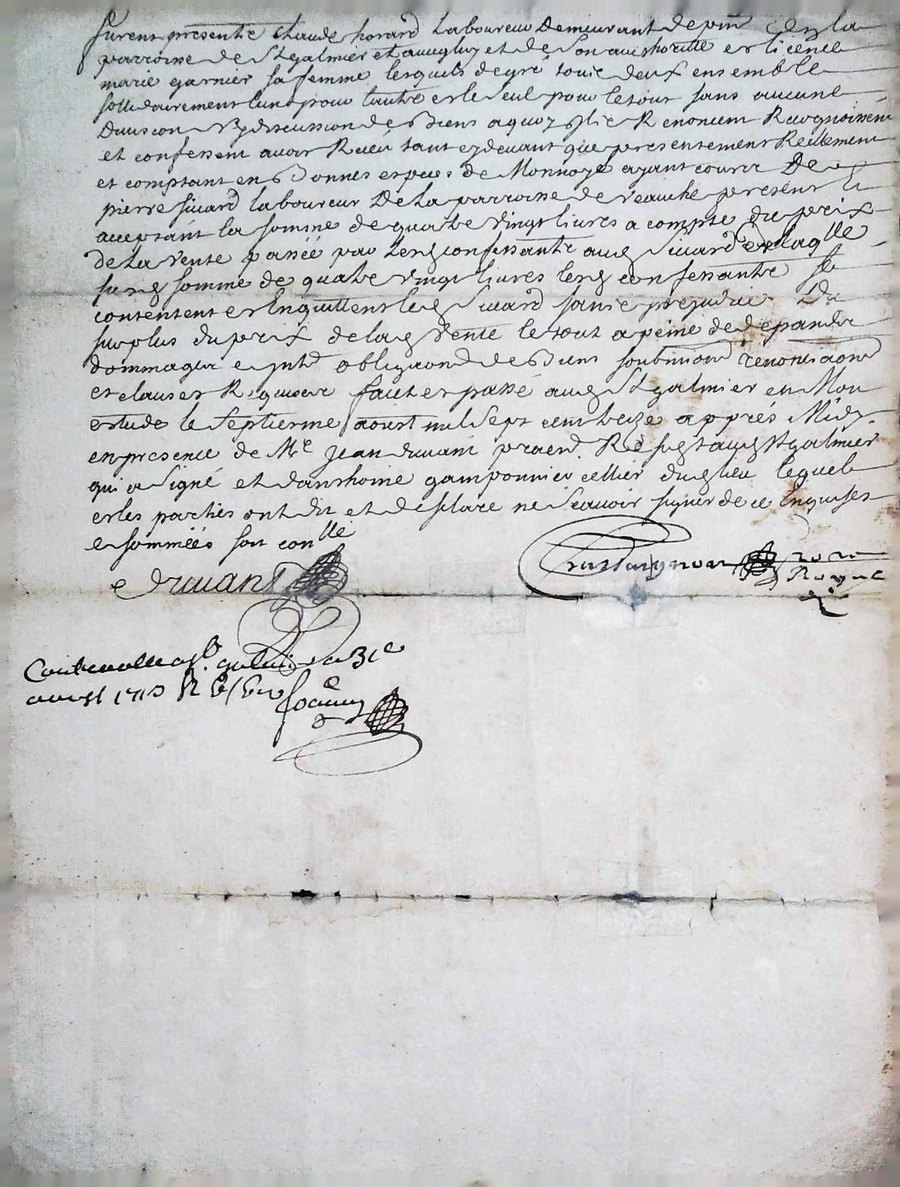 furent presents Claude horard Laboureur Demeurant de
parroisse de St galmier et de Son authoritté et licence
marie garnier sa femme lesquels de gré touts deux ensemble
sollidairement lun pour lautre et le Seul pour le tout sans aucune
Division ny discussion de Biens a quoy Ils Renoncent Recognoissent
et confessent avoir Receu tant cy devant que presentement Réellement
et comptant en Bonnes especes de Monnoye ayant cours De
pierre Sivard laboureur De La parroisse de veauche present &
acceptant la somme de quatre vingt livres a compte du prix
de La vente passée par Lesd confessants aud Sivard de laqlle
susd somme de quatre vingt livres lesd confessants se
contentent et Enquittent led Sivard sans prejudice Du
surplus du prix de lad vente le tout a peine de depands
dommages obligaons de Biens soubmissions renonciaons
et clauses Requises fait et passé aud St galmier en Mon
estude le Septiesme aoust mil Sept cent treize apprés Midy
en presence de Me Jean duvant aud St galmier
qui a Signé et danthoine gamponnier cellier dud lieu lequel
et les parties ont dit et desclaré ne Scavoir signer de ce Enquises
et Sommées soit conllé
Duvant
Chastaignon
Royal
Controlle a St galmier ce 31e
aoust 1713 R